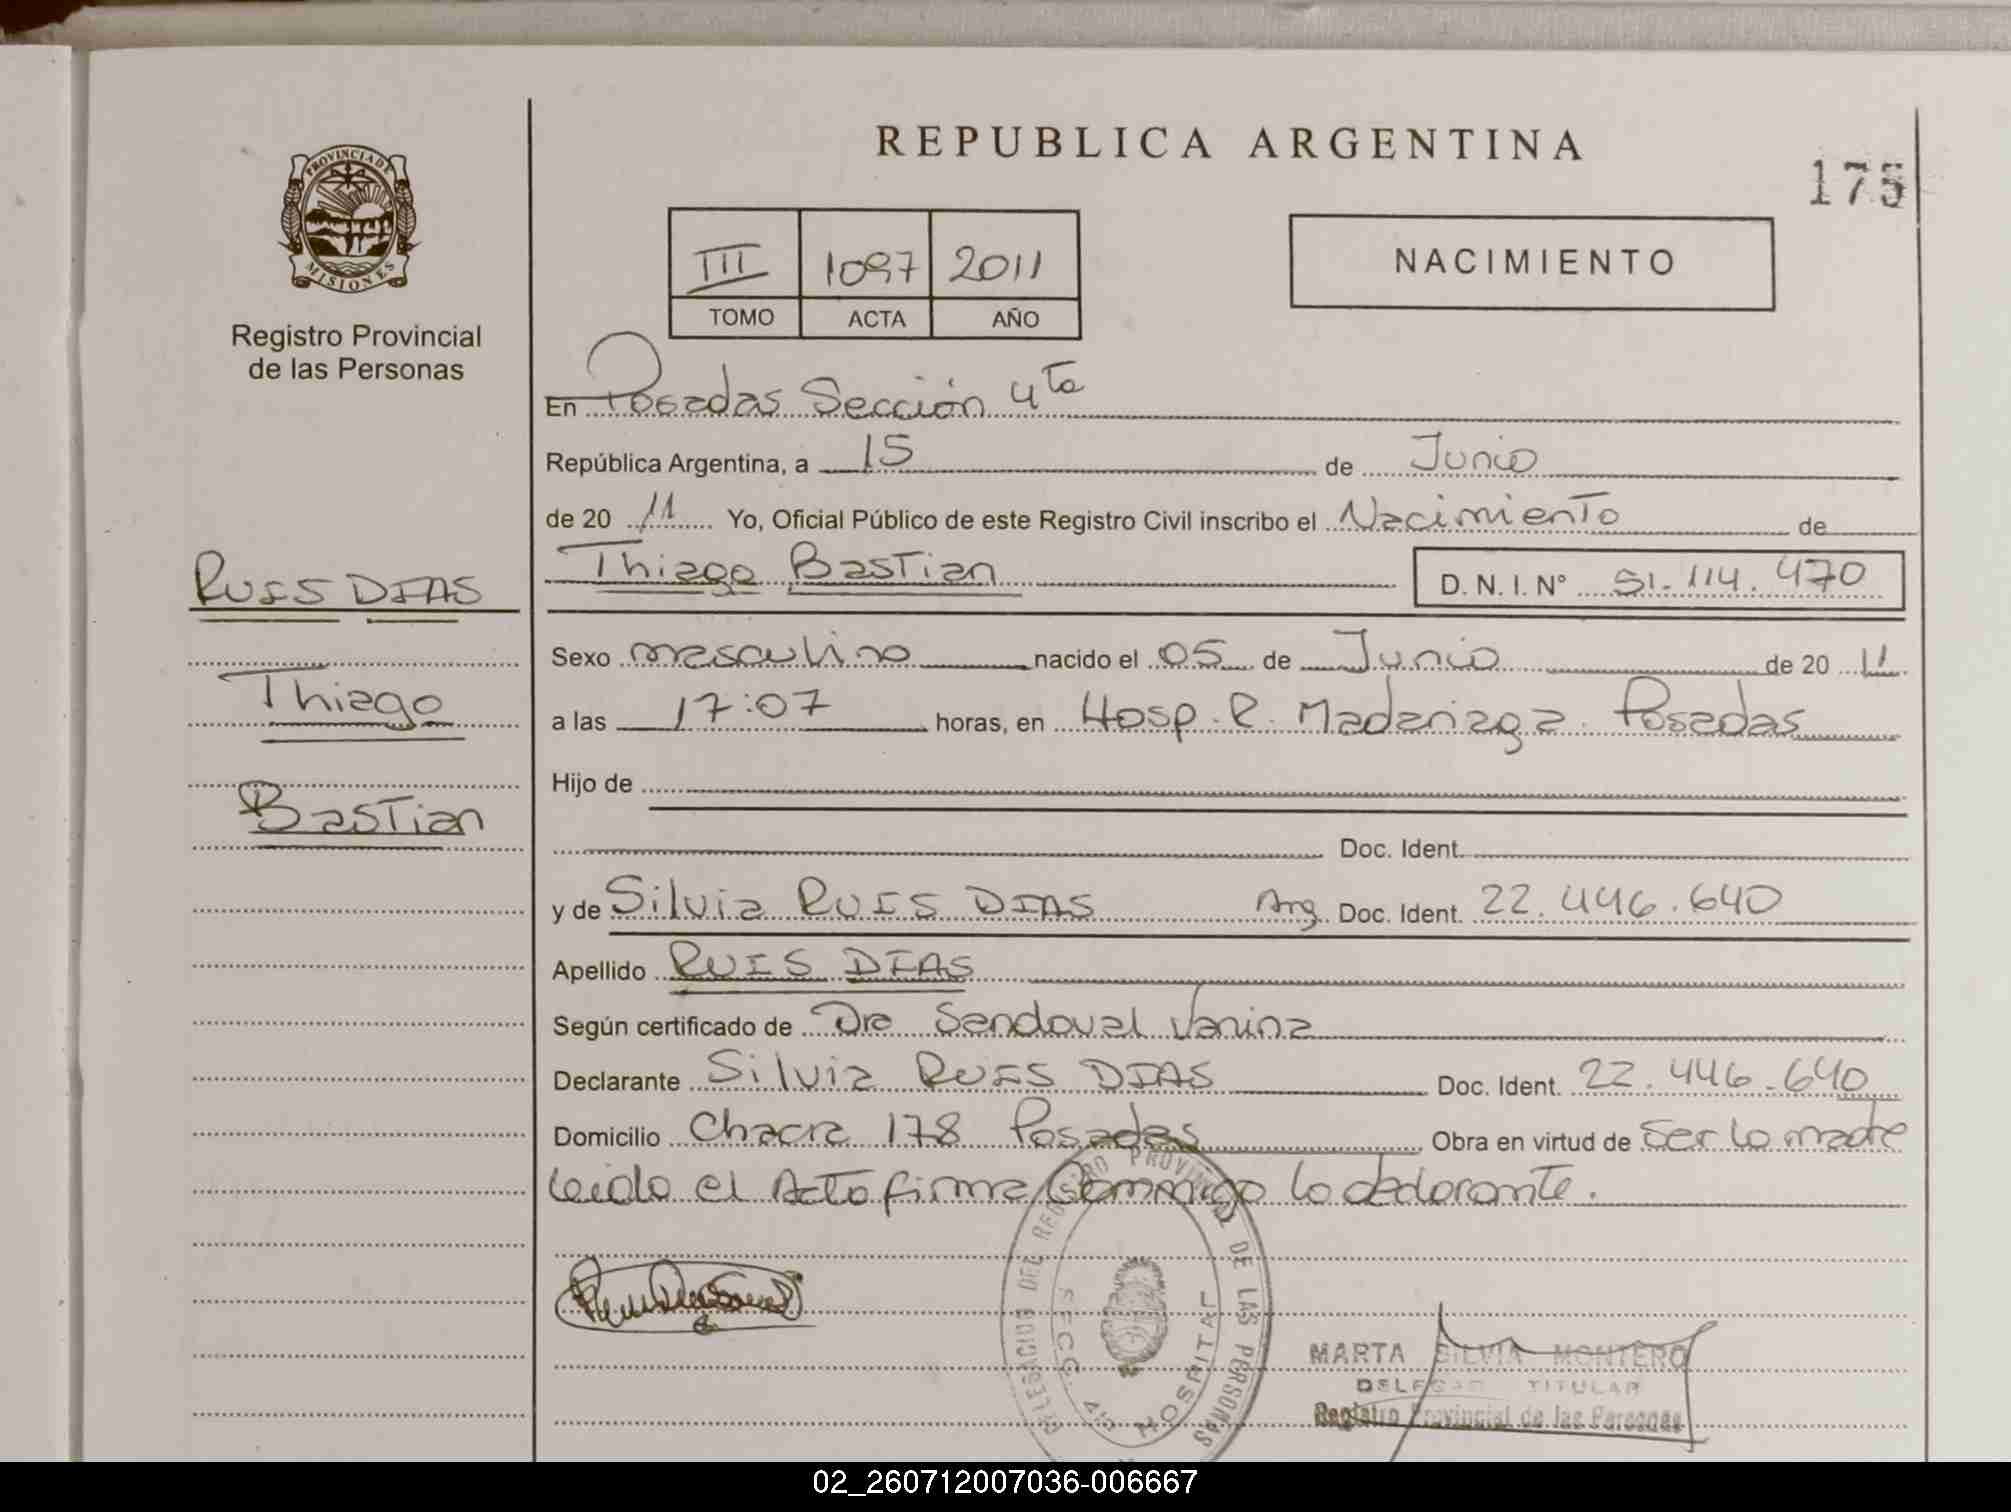 REPUBLICA ARGENTINA
175
PROVINCIA DE
MISIONES
Registro Provincial
de las Personas
III 1097 2011
TOMO ACTA AÑO
NACIMIENTO
En Posadas Sección 4ta
República Argentina, a 15 de Junio
de 20 11 Yo, Oficial Público de este Registro Civil inscribo el Nacimiento de
Thiago Bastian D. N. I. Nº 51.114.470
RUIS DIAS
Thiago
Bastian
Sexo masculino nacido el 05 de Junio de 20 11
a las 17:07 horas, en Hosp. R. Madariaga. Posadas
Hijo de
Doc. Ident.
y de Silvia RUIS DIAS Arg. Doc. Ident. 22.446.640
Apellido RUIS DIAS
Según certificado de Dra Sandoval Vanina
Declarante Silvia RUIS DIAS Doc. Ident. 22.446.640
Domicilio Chacra 178 Posadas Obra en virtud de Ser la madre
leida el Acta firma Conmigo la declarante.
DELEGACION DEL REGISTRO PROVINCIAL DE LAS PERSONAS
SECC. 4ta HOSPITAL
MARTA SILVIA MONTERO
TITULAR
Registro Provincial de las Personas
02_260712007036-006667